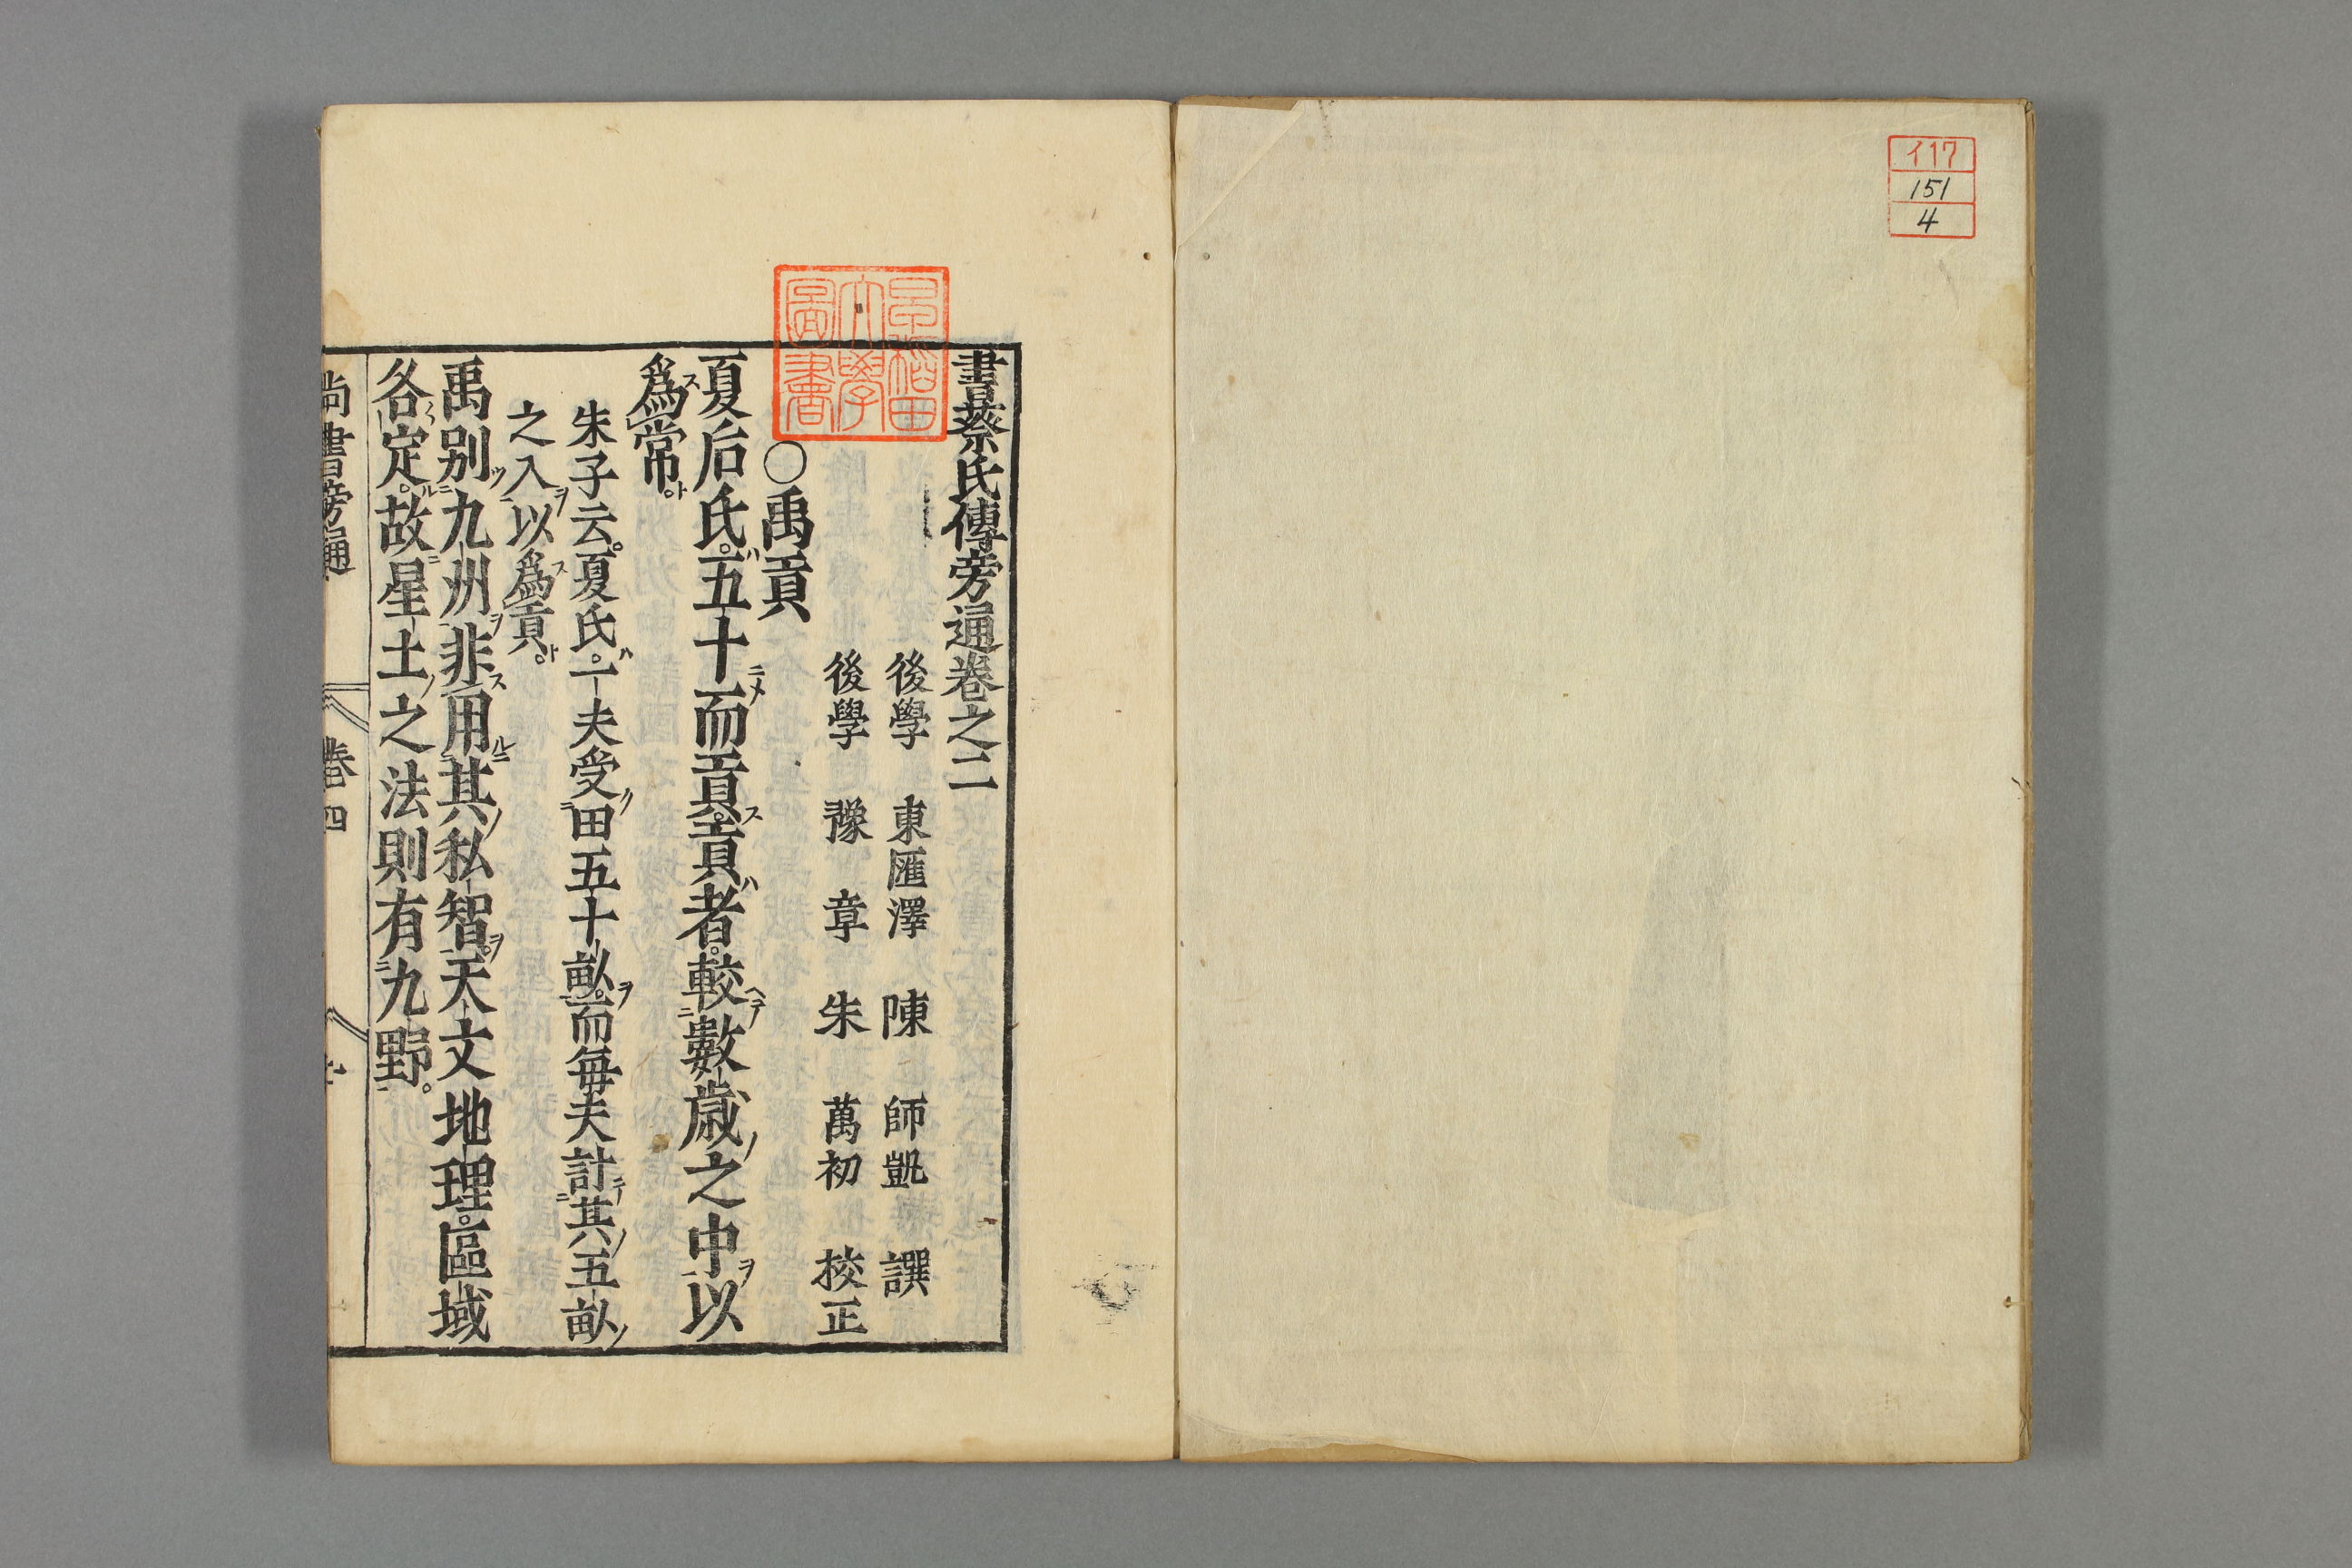 イ17
151
4
書蔡氏傳旁通卷之二
早稲田
大學
圖書
後學 東匯澤 陳 師凱 譔
後學 豫 章 朱 萬初 挍正
〇禹貢
夏后氏。五十而貢。貢者。較數歳之中以
爲常。
朱子云。夏氏。一夫受田五十畝。而毎夫計其五畝
之入以爲貢。
禹別九州非用其私智。天文地理。區域
各定。故星土之法則有九野。
尚書旁通 卷四